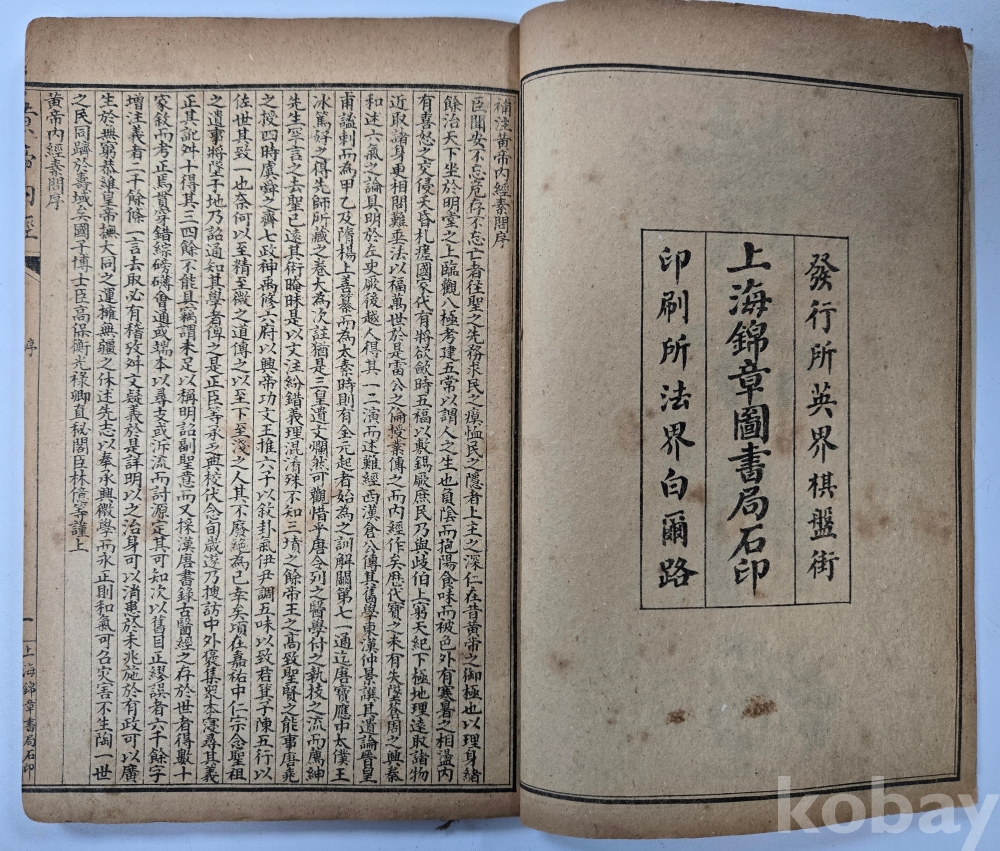 發行所英界棋盤街
上海錦章圖書局石印
印刷所法界白爾路
補注黃帝內經素問序
臣聞安不忘危存不忘亡者往聖之先務求民之瘼恤民之隱者上主之深仁在昔黃帝之御極也以理身緒
餘治天下坐於明堂之上臨觀八極考建五常以謂人之生也負陰而抱陽食味而被色外有寒暑之相盪內
有喜怒之交侵夭昏札瘥國家代有將欲斂時五福以敷錫厥庶民乃與歧伯上窮天紀下極地理遠取諸物
近取諸身更相問難垂法以福萬世於是雷公之倫授業傳之而內經作矣歷代寶之未有失墜蒼周之興秦
和述六氣之論具明於左史厥後越人得其一二演而述難經西漢倉公傳其舊學東漢仲景譔其遺論晉皇
甫謐刺而為甲乙及隋楊上善纂而為太素時則有全元起者始為之訓解闕第七一通迄唐寶應中太僕王
冰篤好之得先師所藏之卷大為次註猶是三皇遺文爛然可觀惜乎唐令列之醫學付之執技之流而薦紳
先生罕言之去聖已遠其術晻昧是以文注紛錯義理混淆殊不知三墳之餘帝王之高致聖賢之能事唐堯
之授四時虞舜之齊七政神禹修六府以興帝功文王推六子以敘卦氣伊尹調五味以致君箕子陳五行以
佐世其致一也奈何以至精至微之道傳之以至下至淺之人其不廢絕為已幸矣頃在嘉祐中仁宗念聖祖
之遺事將墜于地乃詔通知其學者俾之是正臣等承乏典校伏念旬歲遂乃搜訪中外裒集眾本寖尋其義
正其訛舛十得其三四餘不能具竊謂未足以稱明詔副聖意而又採漢唐書錄古醫經之存於世者得數十
家敘而考正焉貫穿錯綜磅礴會通或端本以尋支或泝流而討源定其可知次以舊目正繆誤者六千餘字
增注義者二千餘條一言去取必有稽攷舛文疑義於是詳明以之治身可以消患於未兆施於有政可以廣
生於無窮恭惟皇帝撫大同之運擁無疆之休述先志以奉承興微學而永正則和氣可召灾害不生陶一世
之民同躋於壽域矣國子博士臣高保衡光祿卿直秘閣臣林億等謹上
黃帝內經素問序
黃帝內經
序
一
上海錦章書局石印
kobay